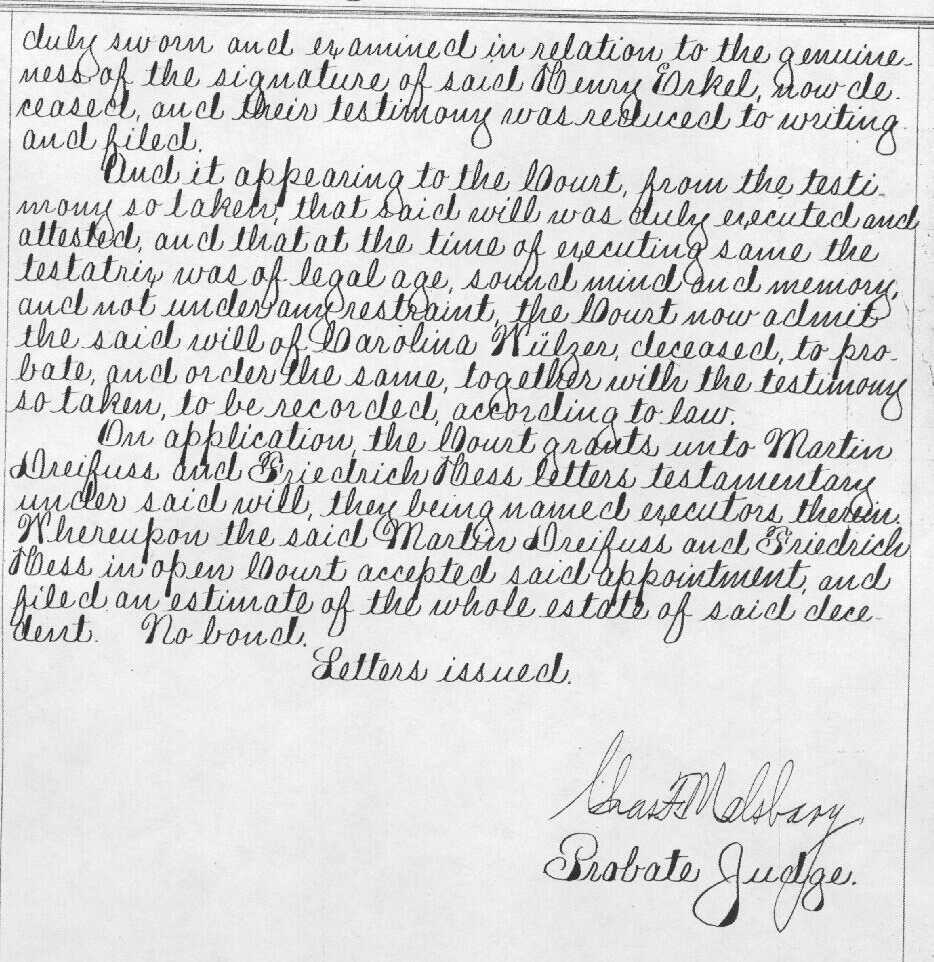 duly sworn and examined in relation to the genuine-
ness of the signature of said Henry Erkel, now de-
ceased, and their testimony was reduced to writing
and filed.
And it appearing to the Court, from the testi-
mony so taken, that said will was duly executed and
attested, and that at the time of executing same the
testatrix was of legal age, sound mind and memory,
and not under any restraint, the Court now admit
the said will of Carolina Wülzer, deceased, to pro-
bate, and order the same, together with the testimony
so taken, to be recorded, according to law.
On application, the Court grants unto Martin
Dreifuss and Friedrich Hess letters testamentary
under said will, they being named executors therein.
Whereupon the said Martin Dreifuss and Friedrich
Hess in open Court accepted said appointment, and
filed an estimate of the whole estate of said dece-
dent. No bond.
Letters issued.
Chas F Malsbary
Probate Judge.